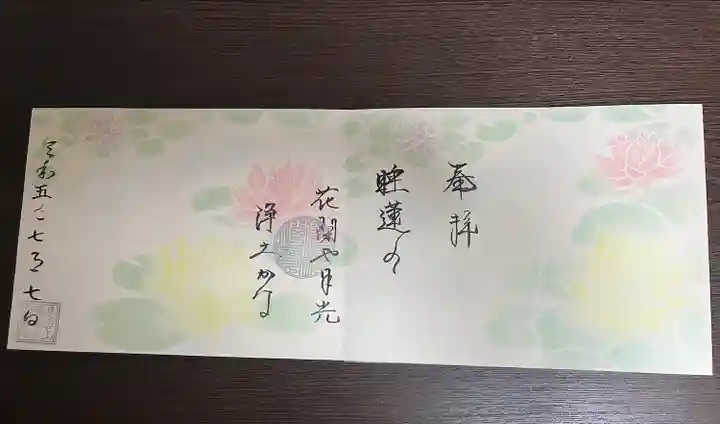 奉拝
睡蓮の
花開や月光
浄土かな
令和五年七月七日